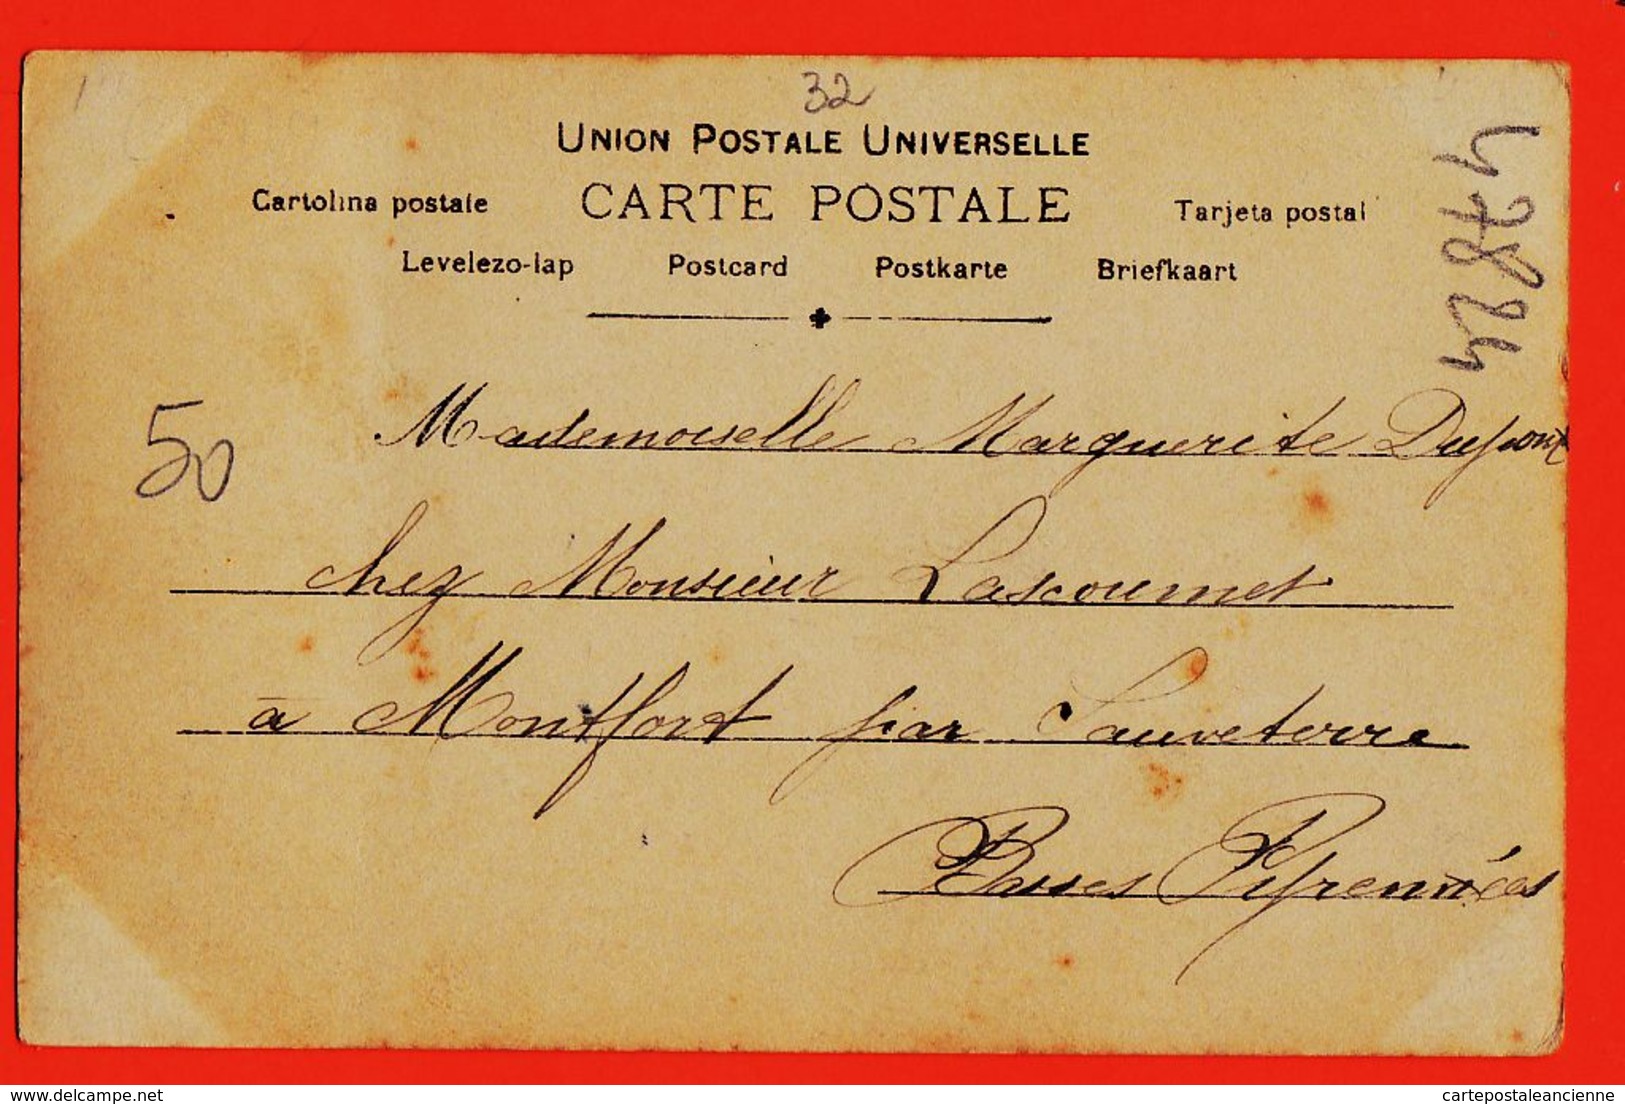 32
UNION POSTALE UNIVERSELLE
CARTE POSTALE
Cartolina postale
Tarjeta postal
Levelezo-lap Postcard Postkarte Briefkaart
47884
50
Mademoiselle Marguerite Dupont
chez Monsieur Lascoumet
à Montfort par Sauveterre
Basses Pyrennées
delcampe.net
cartepostaleancienne